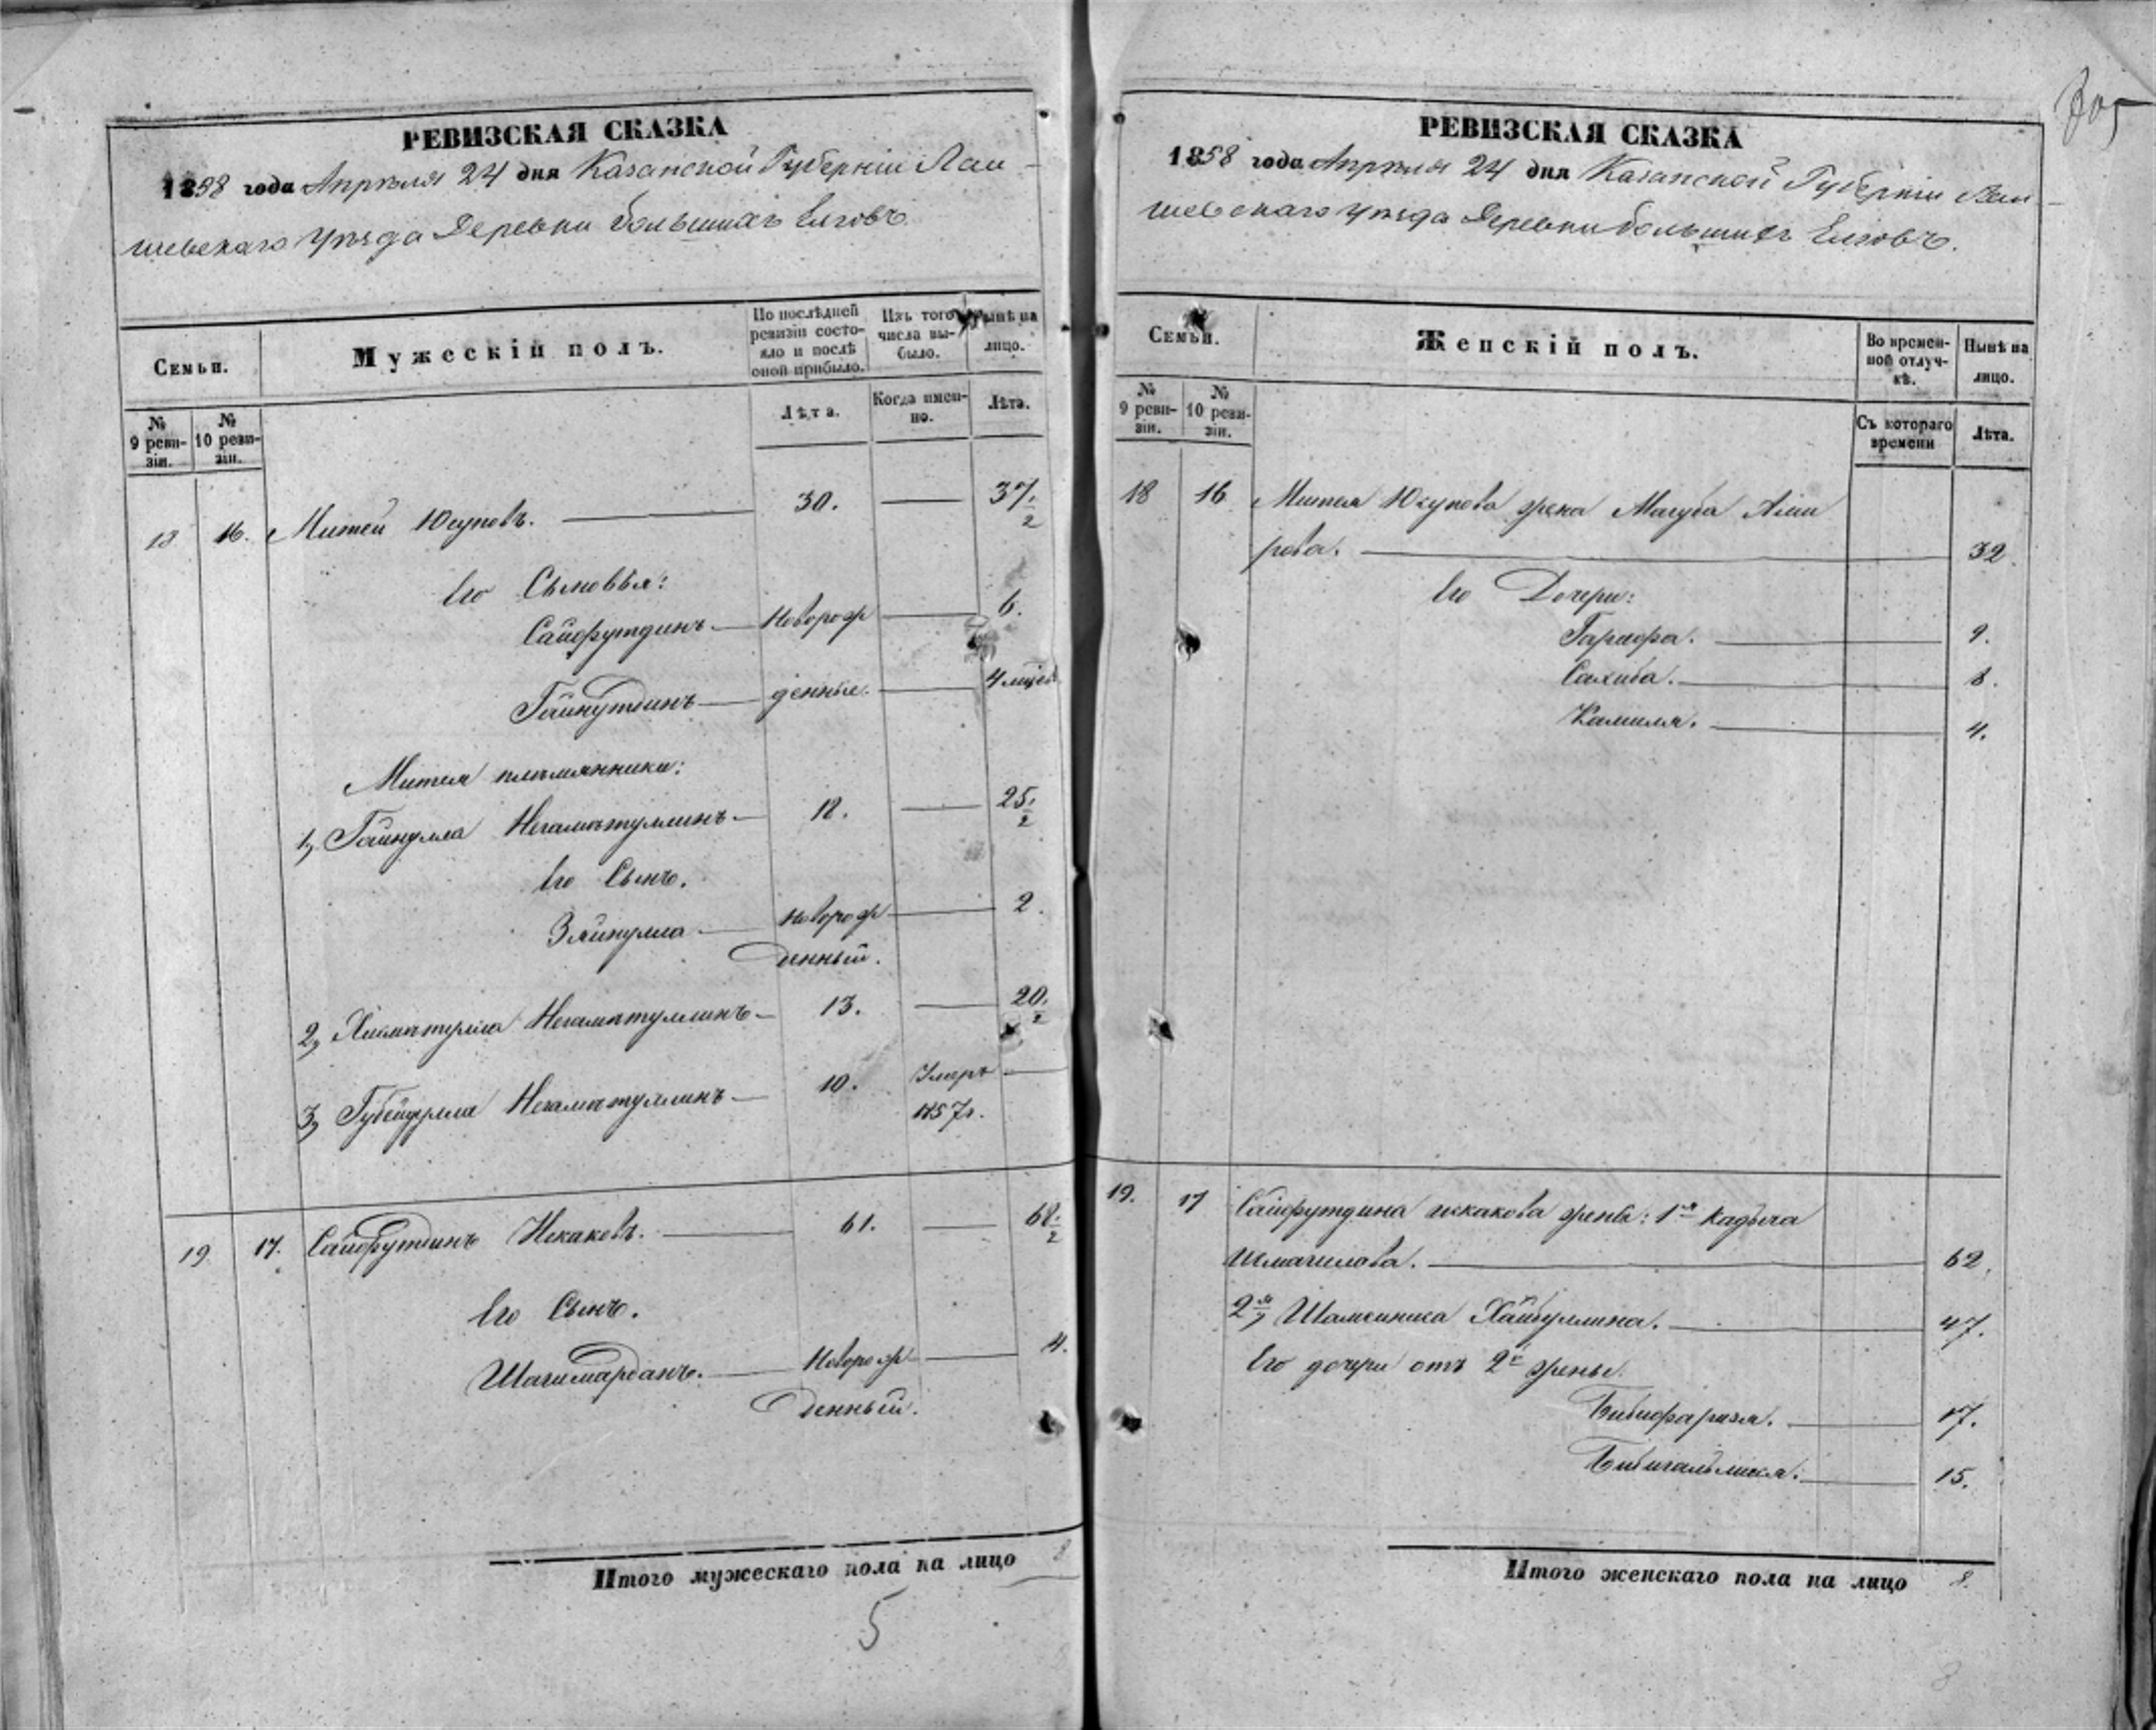 705
РЕВИЗСКАЯ СКАЗКА
1858 года Апрѣля 24 дня Казанской Губерніи Лаи-
шевскаго Уѣзда Деревни Большихъ Елговъ.
Семьи.
Мужескій полъ.
По послѣдней ревизіи состояло и послѣ оной прибыло.
Изъ того числа выбыло.
Нынѣ на лицо.
№ 9 ревизіи.
№ 10 ревизіи.
Лѣта.
Когда именно.
Лѣта.
18 16. Митей Юсуповъ. 30. 37 1/2
Его Сыновья:
Сайфутдинъ Новорож 6.
Гайнутдинъ денные. 4 мѣсев
Митея племянники:
1, Гайнулла Негаматуллинъ 18. 25 1/2
Его Сынъ.
Зяйнулла Новорож 2.
денный.
2, Хисматулла Негаматуллинъ 13. 20 1/2
3, Губейдулла Негаматуллинъ 10. Умеръ
1857 г.
19 17. Сайфутдинъ Искаковъ. 61. 68 1/2
Его Сынъ.
Шагимарданъ. Новорож 4.
денный.
Итого мужескаго пола на лицо 8
5
РЕВИЗСКАЯ СКАЗКА
1858 года Апрѣля 24 дня Казанской Губерніи Лаи-
шевскаго Уѣзда Деревни Большихъ Елговъ.
Семьи.
Женскій полъ.
Во временной отлучкѣ.
Нынѣ на лицо.
№ 9 ревизіи.
№ 10 ревизіи.
Съ котораго времени
Лѣта.
18 16 Митея Юсупова жена Магуба Ами
рова. 32
Его Дочери:
9.
Сахиба. 8.
Камиля. 4.
19. 17 Сайфутдина Искакова жены: 1я Кадыча
Исмагилова. 62.
2я, Шамсиниса Хайбуллина. 47.
Его дочери отъ 2й жены.
Бибифаризя. 17.
15.
Итого женскаго пола на лицо 8.